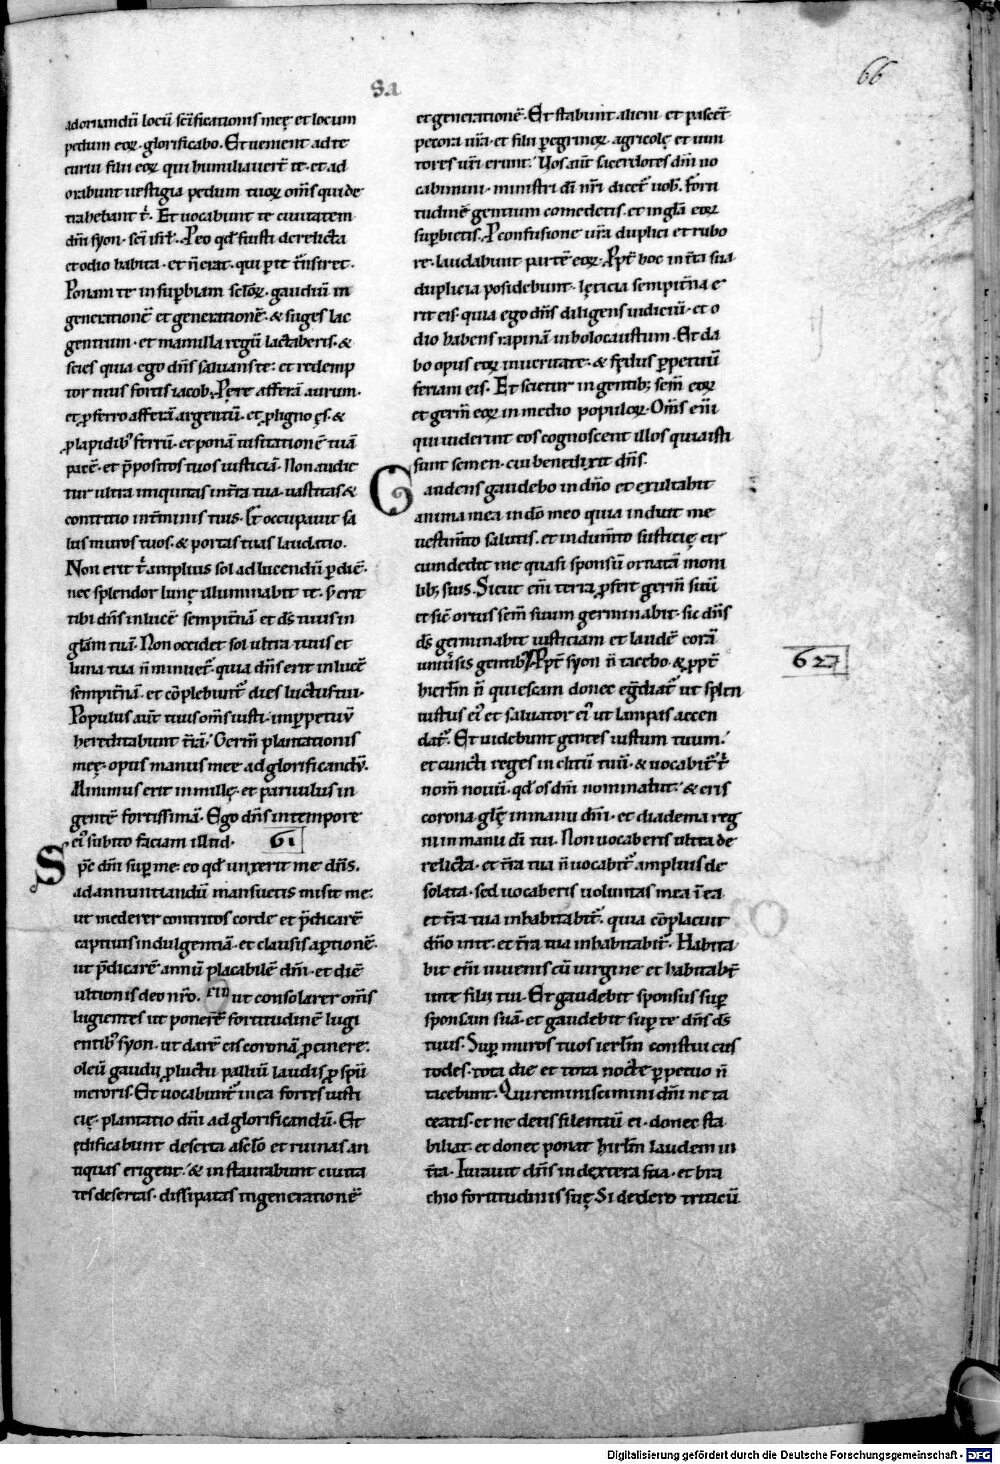 66
sa
adornandū locū scīficationis meę et locum
pedum eoꝝ. glorificabo. Et uenient ad te
curui filii eoꝝ qui humiliauer̄t te. et ad
orabunt uestigia pedum tuoꝝ oms̄ qui de
trahebant t̄. Et uocabunt te ciuitatem
dn̄i syon. sc̄i isrl̄. P eo qd̄ fuisti derelicta
et odio habita. et n̄ erat. qui p̱ te t̄nsiret.
Ponam te in sup̱biam sclōꝝ. gaudiū in
generationē et generationē. & suges lac
gentium. et mamilla regū lactaberis. &
scies quia ego dn̄s saluans te. et redemp
tor tuus fortis iacob. P ęre afferā aurum.
et ꝓ ferro afferā argentū. et ꝓ ligno ęs. &
ꝓ lapidibꝰ ferrū. et ponā uisitationē tuā
pacē. et p̄positos tuos iusticiā. Non audie
tur ultra iniquitas in t̄ra tua. uastitas &
contritio in t̄minis tuis. Et occupauit sa
lus muros tuos. & portas tuas laudatio.
Non erit t̄ amplius sol ad lucendū p̱ diē.
nec splendor lunę illuminabit te. s; erit
tibi dn̄s in lucē sempit̄nā et ds̄ tuus in
glām tuā. Non occidet sol ultra tuus et
luna tua n̄ minuet̄. quia dn̄s erit in lucē
sempit̄nā. et cōplebunt̄ dies luctus tui.
Populus aūt tuus oms̄ iusti. in p̱petuū
hereditabunt t̄rā. Germ̄ plantationis
meę. opus manus mee ad glorificandū.
Minimus erit in mille. et paruulus in
gentē fortissimā. Ego dn̄s in tempore
eiꝰ subito faciam illud. 61
Sp̄c dn̄i sup̱ me. eo qd̄ unxerit me dn̄s.
ad annuntiandū mansuetis misit me.
ut mederer contritos corde et p̄dicarē
captiuis indulgentiā. et clausis ap̱tionē.
ut p̄dicarē annū placabilē dn̄i. et diē
ultionis deo nr̄o. ut consolarer oms̄
lugientes ut ponerē fortitudinē lugi
entibꝰ syon. ut darē eis coronā ꝓ cinere.
oleū gaudii ꝓ luctu. palliū laudis ꝓ spū
meroris. Et uocabunt̄ in ea fortes iusti
cię. plantatio dn̄i ad glorificandū. Et
ędificabunt deserta a sclō et ruinas an
tiquas erigent. & instaurabunt ciuita
tes desertas. dissipatas in generationē
et generationē. Et stabunt alieni et pascēt
pecora ur̄a. et filii p̱egrinoꝝ. agricolę et uini
tores ur̄i erunt. Uos aūt sacerdotes dn̄i uo
cabimini. ministri dī nr̄i dicet̄ uob̄. Forti
tudinē gentium comedetis. et in glā eoꝝ
sup̱bietis. P confusione ur̄a duplici et rubo
re. laudabunt partē eoꝝ. Ppt̄ hoc in t̄ra sua
duplicia posidebunt. lęticia sempit̄na e
rit eis. quia ego dn̄s diligens iudiciū. et o
dio habens rapinā in holocaustum. Et da
bo opus eoꝝ in ueritate. & fędus p̱petuū
feriam eis. Et scietur in gentib; sem̄ eoꝝ
et germ̄ eoꝝ in medio populoꝝ. Oms̄ em̄i
qui uiderint eos cognoscent illos quia isti
sunt semen. cui benedixit dn̄s.
Gaudens gaudebo in dn̄o et exultabit
anima mea in dō meo quia induit me
uestim̄to salutis. et indum̄to iusticię cir
cumdedit me quasi sponsū ornatā moni
lib; suis. Sicut em̄i terra ꝓfert germ̄ suū
et sic̄ ortus sem̄ suum germinabit. sic dn̄s
ds̄ germinabit iusticiam et laudē corā
uniūsis gentibꝰ. Ppt̄ syon n̄ tacebo. & ꝓpt̄ 62
hierlm̄ n̄ quiescam donec eg̱diat̄ ut splen
iustus eiꝰ et saluator eiꝰ ut lampas accen
dat̄. Et uidebunt gentes iustum tuum.
et cuncti reges inclitū tuū. & uocabit̄ t̄
nom̄ nouū. qd̄ os dn̄i nominabit. & eris
corona glę̄ in manu dn̄i. et diadema reg
ni in manu dī tui. Non uocaberis ultra de
relicta. et t̄ra tua n̄ uocabit̄ amplius de
solata. sed uocaberis uoluntas mea ī ea
et t̄ra tua inhabitabit̄. quia cōplacuit
dn̄o in te. et t̄ra tua inhabitabit̄. Habita
bit em̄i iuuenis cū uirgine et habitabt̄
in te filii tui. Et gaudebit sponsus sup̱
sponsam suā. et gaudebit sup̱ te dn̄s ds̄
tuus. Sup̱ muros tuos ierlm̄ constitui cus
todes. tota die et tota nocte p̱petuo n̄
tacebunt. Qui reminiscimini dn̄i ne ta
ceatis. et ne detis silentiū ei. donec sta
biliat. et donec ponat hirlm̄ laudem in
t̄ra. Iurauit dn̄s in dextera sua. et bra
chio fortitudinis suę Si dedero triticū
Digitalisierung gefördert durch die Deutsche Forschungsgemeinschaft - DFG